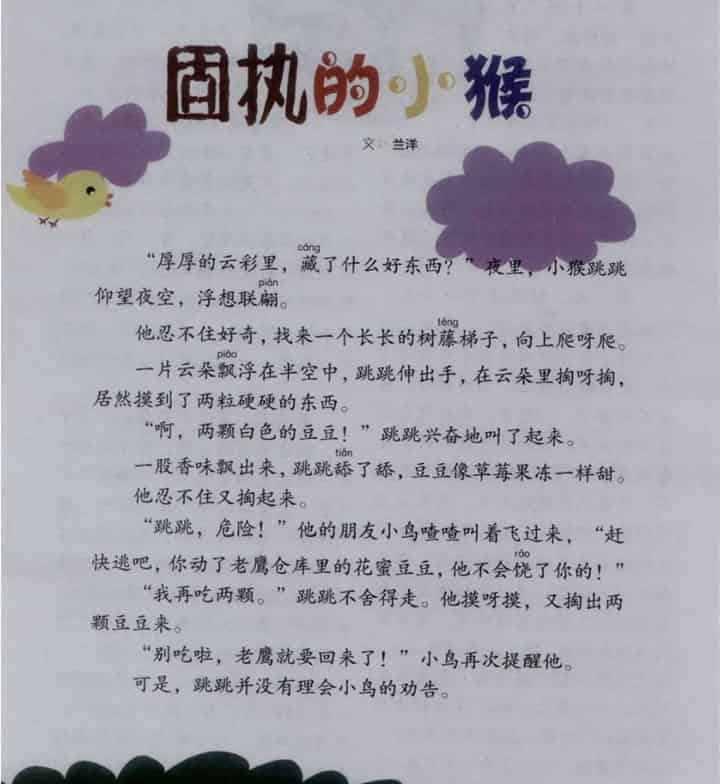 固执的小猴
文 兰洋
cáng
“厚厚的云彩里，藏了什么好东西？”夜里，小猴跳跳
piān
仰望夜空，浮想联翩。
téng
他忍不住好奇，找来一个长长的树藤梯子，向上爬呀爬。
piāo
一片云朵飘浮在半空中，跳跳伸出手，在云朵里掏呀掏，
居然摸到了两粒硬硬的东西。
“啊，两颗白色的豆豆！”跳跳兴奋地叫了起来。
tiǎn
一股香味飘出来，跳跳舔了舔，豆豆像草莓果冻一样甜。
他忍不住又掏起来。
“跳跳，危险！”他的朋友小鸟喳喳叫着飞过来，“赶
ráo
快逃吧，你动了老鹰仓库里的花蜜豆豆，他不会饶了你的！”
“我再吃两颗。”跳跳不舍得走。他摸呀摸，又掏出两
颗豆豆来。
“别吃啦，老鹰就要回来了！”小鸟再次提醒他。
可是，跳跳并没有理会小鸟的劝告。